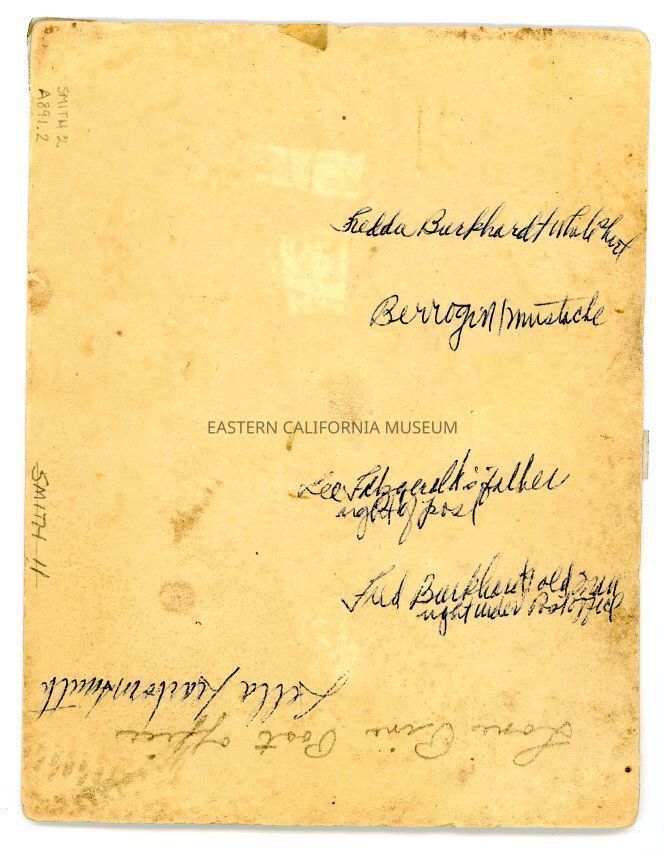 SMITH 2
A891.2
Freddie Burkhardt White Shirt
Berrogin/mustache
EASTERN CALIFORNIA MUSEUM
Lee Fitzgerald's father
right of post
SMITH 11
Fred Burkhardt old man
right under Post Office
Lella
Lone Pine Post Office